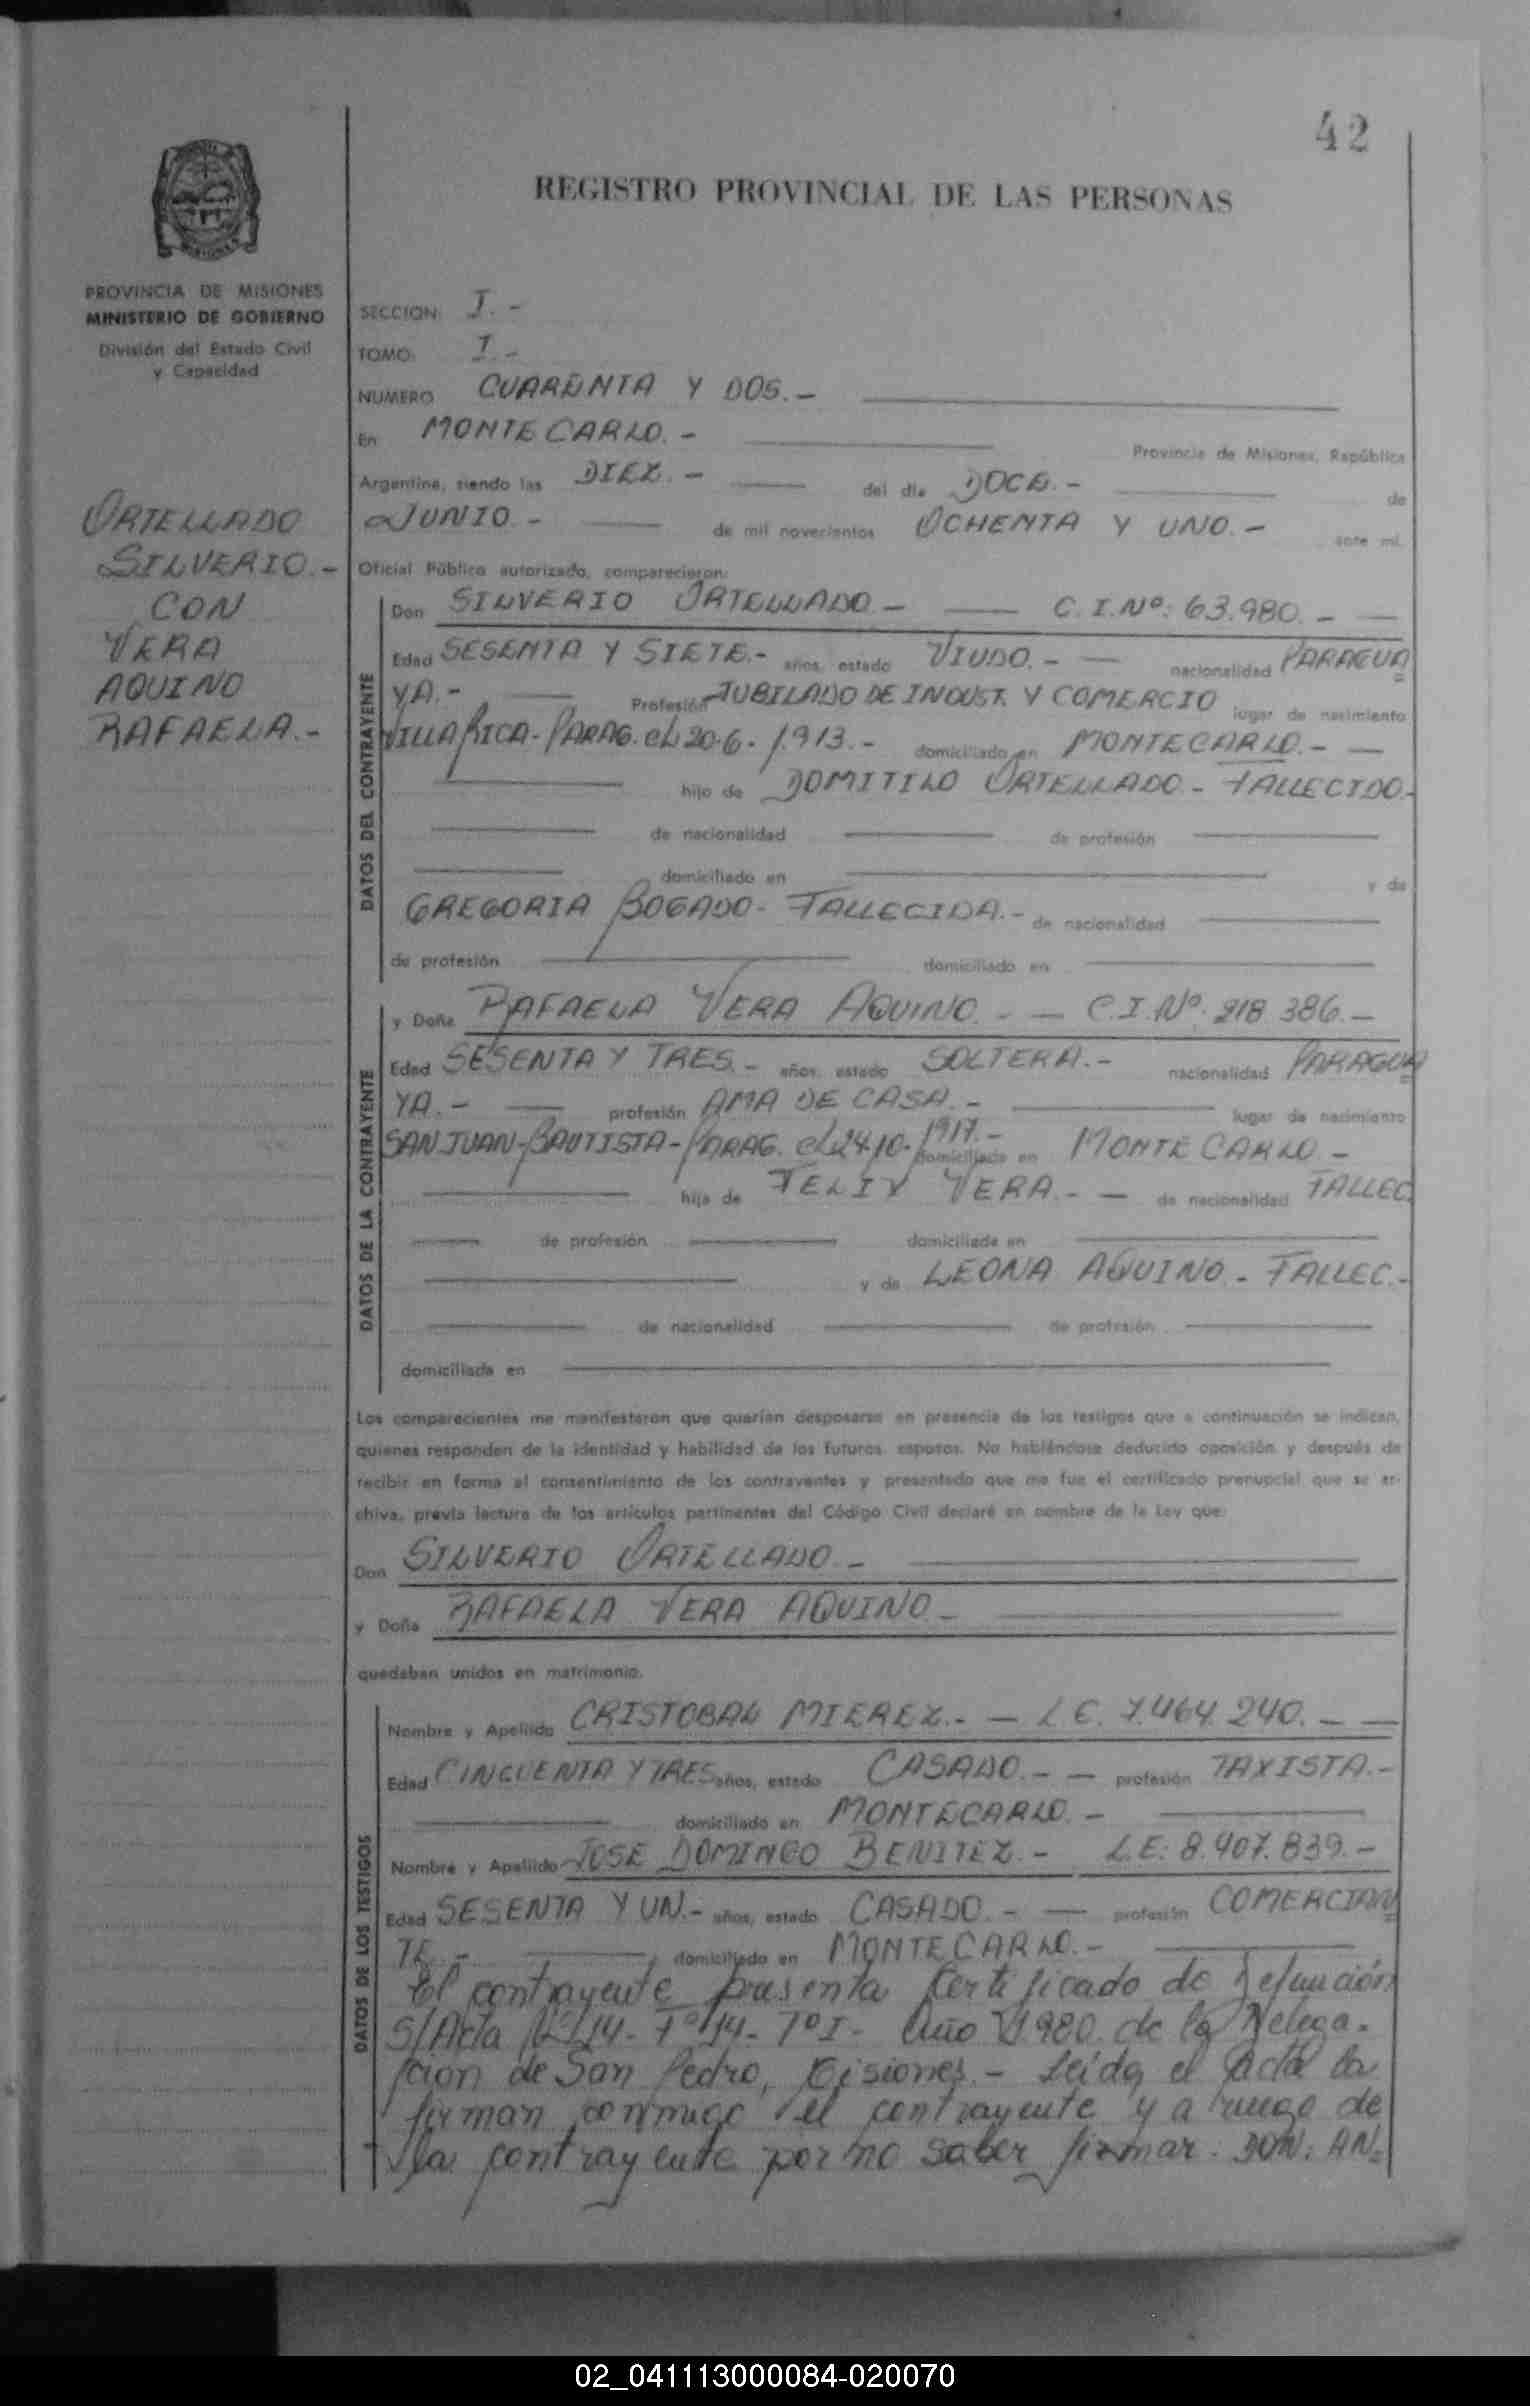 42
REGISTRO PROVINCIAL DE LAS PERSONAS
PROVINCIA DE MISIONES
MINISTERIO DE GOBIERNO
División del Estado Civil
y Capacidad
ORTELLADO
SILVERIO.-
CON
VERA
AQUINO
RAFAELA.-
SECCION: I.-
TOMO: I.-
NUMERO CUARENTA Y DOS.-
En MONTECARLO.- Provincia de Misiones, República
Argentina, siendo las DIEZ.- del día DOCE.- de
JUNIO.- de mil novecientos OCHENTA Y UNO.- ante mí,
Oficial Público autorizado, comparecieron:
DATOS DEL CONTRAYENTE
Don SILVERIO ORTELLADO.- C.I.Nº: 63.980.-
Edad SESENTA Y SIETE.- años, estado VIUDO.- nacionalidad PARAGUA
YA.- Profesión JUBILADO DE INDUST. Y COMERCIO lugar de nacimiento
VILLA RICA-PARAG. el 20-6-1.913.- domiciliado en MONTECARLO.-
hijo de DOMITILO ORTELLADO.- FALLECIDO.-
de nacionalidad de profesión
domiciliado en y de
GREGORIA BOGADO- FALLECIDA.- de nacionalidad
de profesión domiciliado en
DATOS DE LA CONTRAYENTE
y Doña RAFAELA VERA AQUINO.- C.I.Nº. 218.386.-
Edad SESENTA Y TRES.- años, estado SOLTERA.- nacionalidad PARAGUA
YA.- profesión AMA DE CASA.- lugar de nacimiento
SAN JUAN-BAUTISTA-PARAG. el 24-10-1917.- domiciliada en MONTECARLO.-
hija de FELIX VERA.- de nacionalidad FALLEC.
de profesión domiciliado en
y de LEONA AQUINO.- FALLEC.-
de nacionalidad de profesión
domiciliada en
Los comparecientes me manifestaron que querían desposarse en presencia de los testigos que a continuación se indican,
quienes responden de la identidad y habilidad de los futuros esposos. No habiéndose deducido oposición y después de
recibir en forma el consentimiento de los contrayentes y presentado que me fue el certificado prenupcial que se ar-
chiva, previa lectura de los artículos pertinentes del Código Civil declaré en nombre de la Ley que:
Don SILVERIO ORTELLADO.-
y Doña RAFAELA VERA AQUINO.-
quedaban unidos en matrimonio.
DATOS DE LOS TESTIGOS
Nombre y Apellido CRISTOBAL MIEREZ.- L.E. 7.464.240.-
Edad CINCUENTA Y TRES años, estado CASADO.- profesión TAXISTA.-
domiciliado en MONTECARLO.-
Nombre y Apellido JOSE DOMINGO BENITEZ.- L.E: 8.407.839.-
Edad SESENTA Y UN.- años, estado CASADO.- profesión COMERCIAN
TE.- domiciliado en MONTECARLO.-
El contrayente presenta Certificado de Defunción
S/Acta Nº 14- Fº 14- Tº I- Año 1.980. de la Delega-
cion de San Pedro, Misiones.- Leida el Acta la
firman conmigo el contrayente y a ruego de
la contrayente por no saber firmar. DON: AN=
02_041113000084-020070